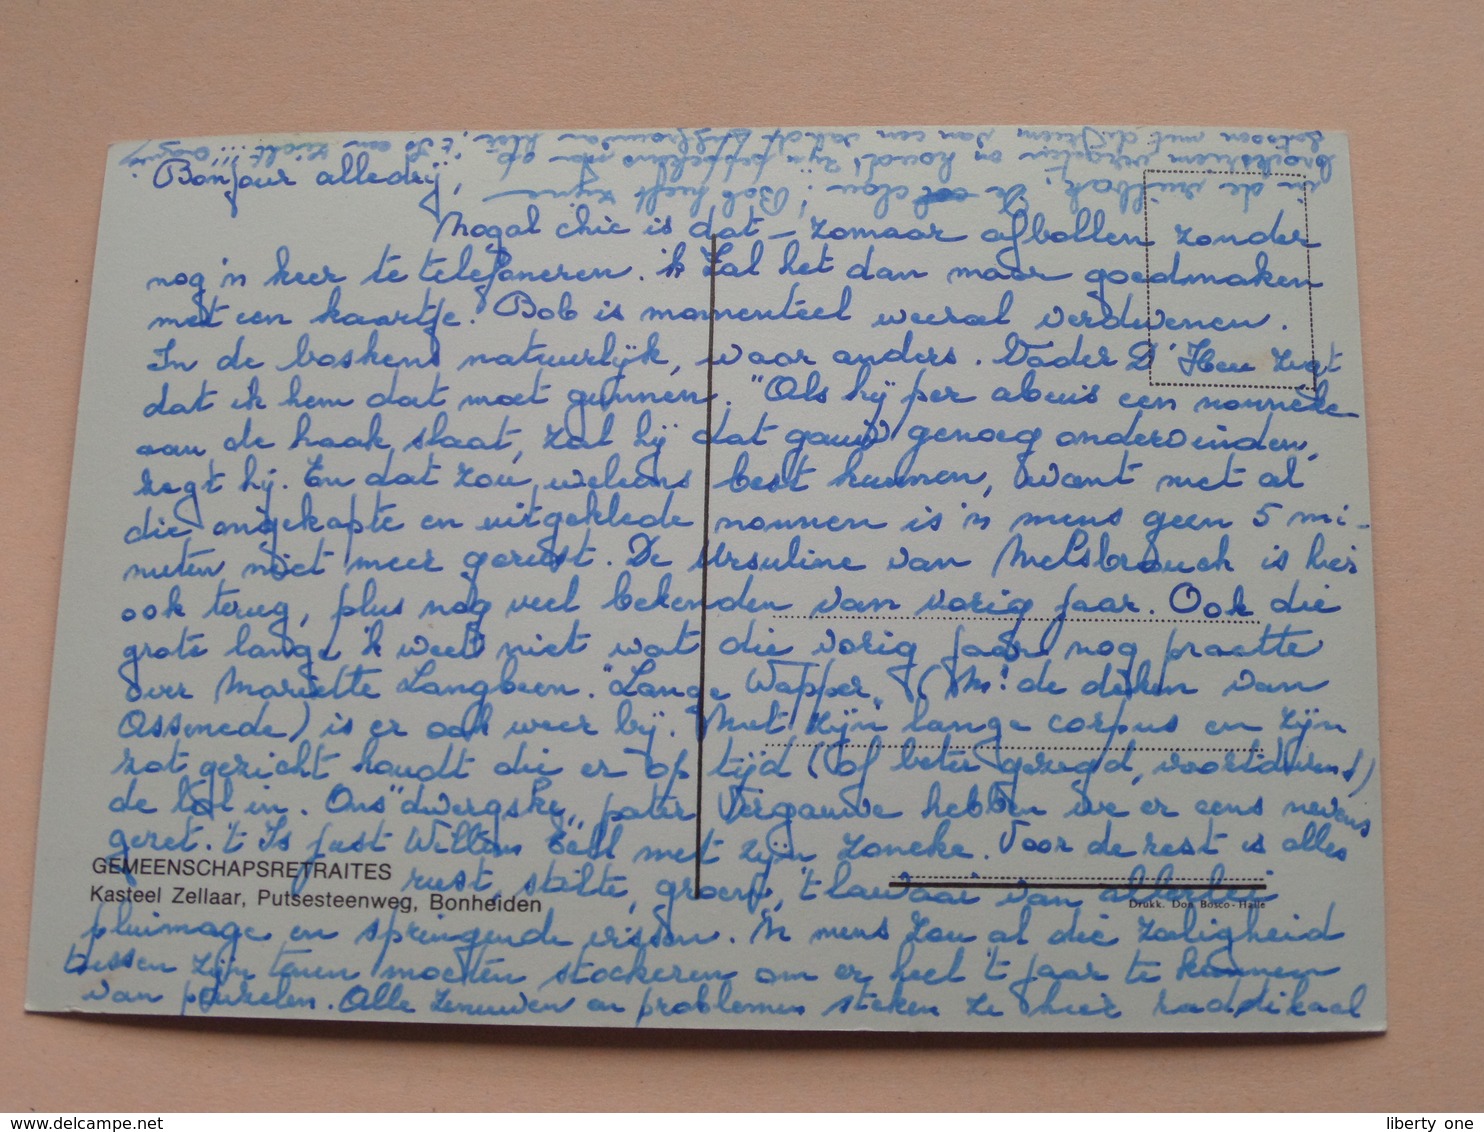 Bonjour alledrij,
Nogal chic is dat – zomaar afbollen zonder
nog 'n keer te telefoneren. ik zal het dan maar goedmaken
met een kaartje. Bob is momenteel weeral verdwenen.
In de boskens natuurlijk, waar anders. Vader D' zegt
dat ik hem dat moet gunnen. "Als hij per abuis een nonneke
aan de haak slaat, zal hij dat gauw genoeg ondervinden,
zegt hij. En dat zou weleens best kunnen, want met al
die ongekapte en uitgeklede nonnen is 'n mens geen 5 mi-
nuten niet meer gerust. De Ursuline van Melsbrouck is hier
ook terug, plus nog veel bekenden van vorig jaar. Ook die
grote lange ik weet niet wat die vorig jaar nog praatte
over Mariette Langbeen. "Lange Wapper" (M! de deken van
Assenede) is er ook weer bij. Met zijn lange corpus en zijn
zot gezicht houdt die er op tijd (of beter gezegd, voortdurend)
de lol in. Ons "dwergske", pater Vergauwe hebben we er eens nevens
gezet. 't Is just Willem Tell met zijn zoneke. Voor de rest is alles
rust, stilte, groen, 't lawaai van allerlei
pluimage en springende vissen. 'n mens zou al die zaligheid
tussen zijn tanen moeten stockeren om er heel 't jaar te kunnen
van peuzelen. Alle zenuwen en problemen steken ze hier raddikaal
in de vuilbak. De clou! Bob heeft zijne
GEMEENSCHAPSRETRAITES
Kasteel Zellaar, Putsesteenweg, Bonheiden
Drukk. Don Bosco - Halle
www.delcampe.net
liberty one